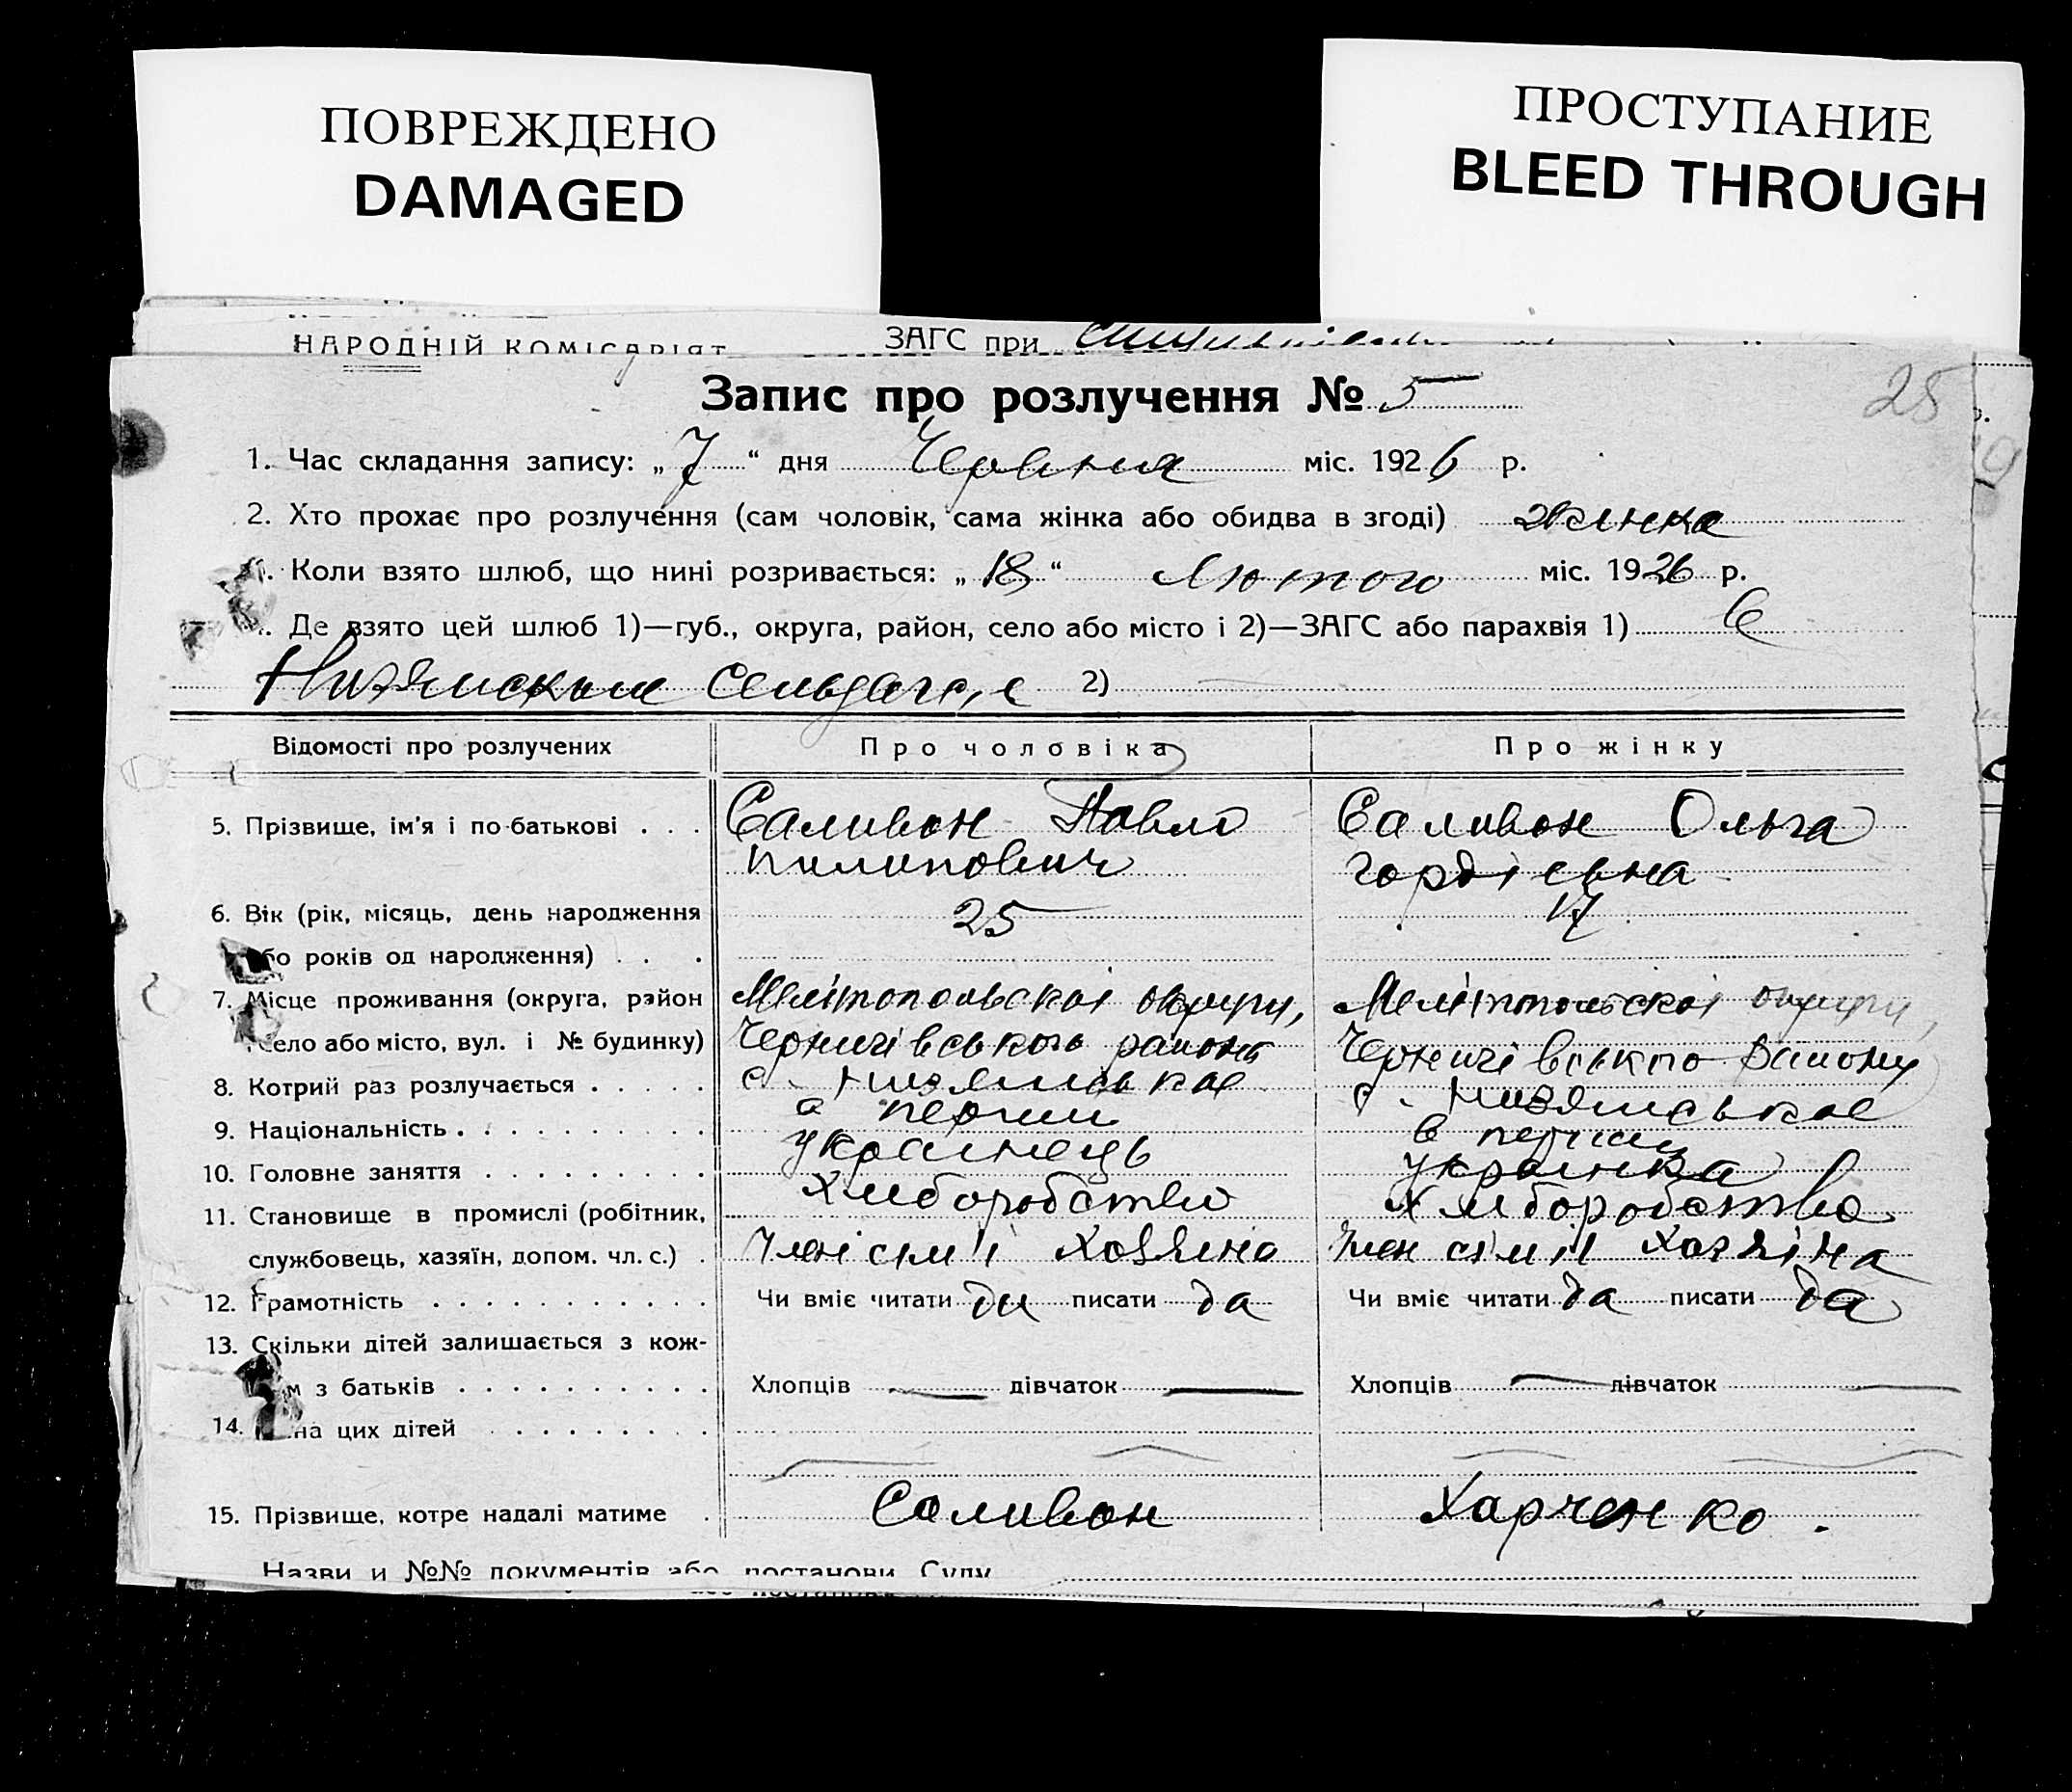 ПОВРЕЖДЕНО
DAMAGED
ПРОСТУПАНИЕ
BLEED THROUGH
НАРОДНІЙ КОМІСАРІЯТ ЗАГС при
Запис про розлучення № 5
25
1. Час складання запису: „ 7 “ дня Червня міс. 1926 р.
2. Хто прохає про розлучення (сам чоловік, сама жінка або обидва в згоді) жинка
Коли взято шлюб, що нині розривається: „ 18 “ Лютого міс. 1926 р.
Де взято цей шлюб 1)—губ., округа, район, село або місто і 2)—ЗАГС або парахвія 1) С
2)
Відомості про розлучених Про чоловіка Про жінку
5. Прізвище, ім'я і по-батькові . . . Саливон Павло Саливон Ольга
пилипович гордієвна
6. Вік (рік, місяць, день народження 25 17
бо років од народження) . . .
7. Місце проживання (округа, район Мелітопольскоі округи, Мелітопольскоі округи,
село або місто, вул. і № будинку) Чернигівського району Чернигівського району
8. Котрий раз розлучається . . . . . с.  с.
перший в перший
9. Національність . . . . . . . . . . українець українка
10. Головне заняття . . . . . . . . . Хлиборобство Хлиборобство
11. Становище в промислі (робітник,
службовець, хазяїн, допом. чл. с.) . Член сім'ї Хазяина Член сім'ії Хазяіна
12. Грамотність . . . . . . . . . . . Чи вміє читати да писати да Чи вміє читати да писати да
13. Скільки дітей залишається з кож-
м з батьків . . . . . . . . . . Хлопців — дівчаток — Хлопців — дівчаток —
14. на цих дітей . . . . . . . .
15. Прізвище, котре надалі матиме . Саливон Харченко .
Назви и №№ документів або постанови Суду